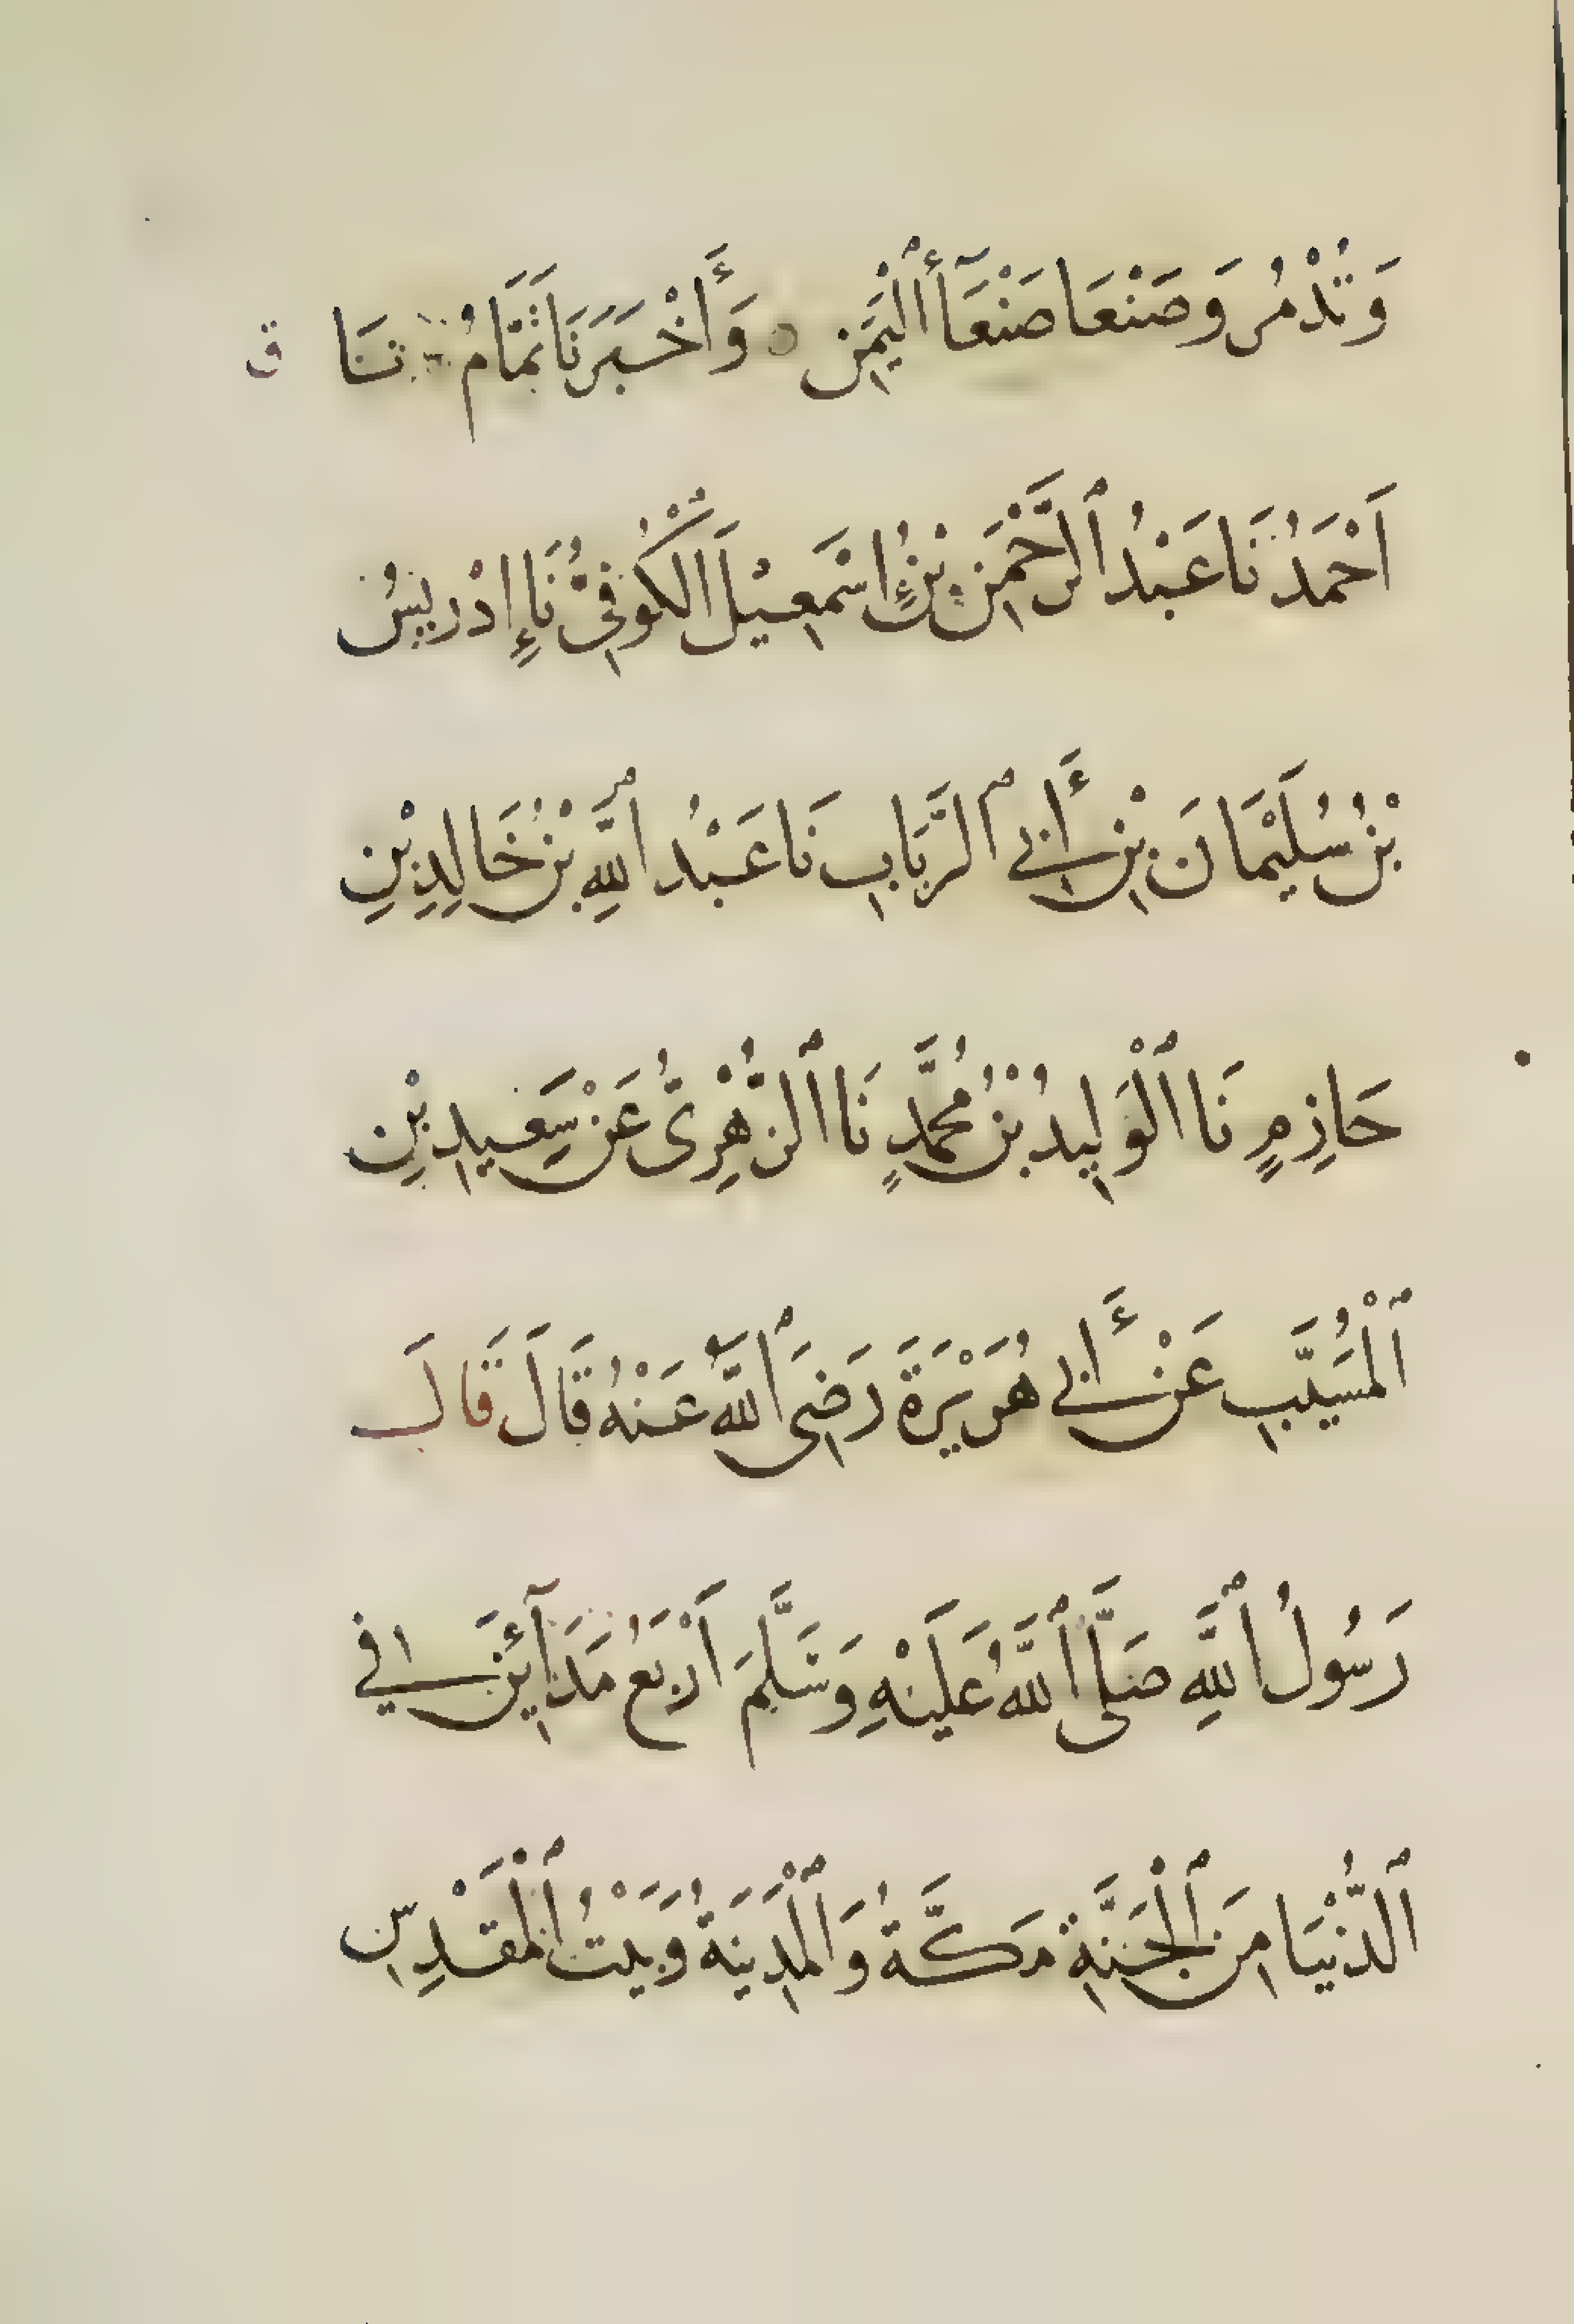 وَتُدْمُر وَصَنْعَا صَنْعَآءُ ٱلْيَمَنِ وَأَخْبَرَنَا تَمَّامُ ثَنَا ق
اَحْمَدُ نَا عَبْدُ ٱلرَّحْمَنِ بْنُ إِسْمَعِيْلَ الْكُوفِيُّ نَا إِدْرِيسُ
بْنُ سُلَيْمَانَ بْنِ أَبِي ٱلرَّبَابِ نَا عَبْدُ ٱللَّهِ بْنُ خَالِدِ بْنِ
حَازِمٍ نَا ٱلْوَلِيدُ بْنُ مُحَمَّدٍ نَا ٱلزُّهْرِىُّ عَنْ سَعِيدِ بْنِ
ٱلْمُسَيَّبِ عَنْ أَبِي هُرَيْرَةَ رَضِىَ ٱللَّهُ عَنْهُ قَالَ قَالَ
رَسُولُ ٱللَّهِ صَلَّى ٱللَّهُ عَلَيْهِ وَسَلَّمَ اَرْبَعُ مَدَآئِنَ فِي
ٱلدُّنْيَا مِنَ ٱلْجَنَّةِ مَكَّةُ وَٱلْمَدِينَةُ وَبَيْتُ ٱلْمَقْدِسِ